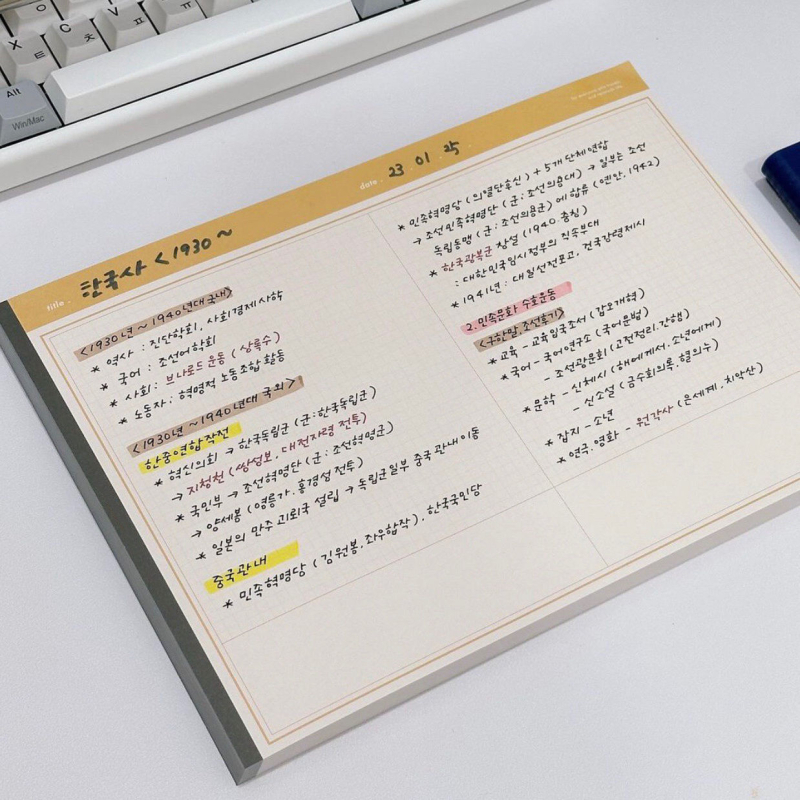 X C V
ㅌ ㅊ ㅍ
Alt
Win/Mac
title. 한국사 <1930~
date. 23 01 25
<1930년 ~ 1940년대 국내>
* 역사 : 진단학회, 사회경제사학
* 국어 : 조선어학회
* 사회 : 브나로드 운동 (상록수)
* 노동자 : 혁명적 노동조합 활동
<1930년 ~ 1940년대 국외>
한중연합작전
* 혁신의회 → 한국독립군 (군:한국독립군)
→ 지청천 (쌍성보, 대전자령 전투)
* 국민부 → 조선혁명단 (군:조선혁명군)
→ 양세봉 (영릉가. 흥경성 전투)
* 일본의 만주 괴뢰국 설립 → 독립군일부 중국 관내 이동
중국관내
* 민족혁명당 (김원봉, 좌우합작). 한국국민당
* 민족혁명당 (의열단후신) + 5개 단체연합
→ 조선민족혁명단 (군:조선의용대) → 일부는 조선
독립동맹 (군:조선의용군)에 합류 (옌안. 1942)
* 한국광복군 창설 (1940. 충칭)
: 대한민국임시정부의 직속부대
* 1941년 : 대일선전포고, 건국강령제시
2. 민족문화 수호운동
<구한말, 조선후기>
* 교육 - 교육입국조서 (갑오개혁)
* 국어 - 국어연구소 (국어문법)
- 조선광문회 (고전정리.간행)
* 문학 - 신체시 (해에게서.소년에게)
- 신소설 (금수회의록, 혈의누)
* 잡지 - 소년
* 연극.영화 - 원각사 (은세계, 치악산)